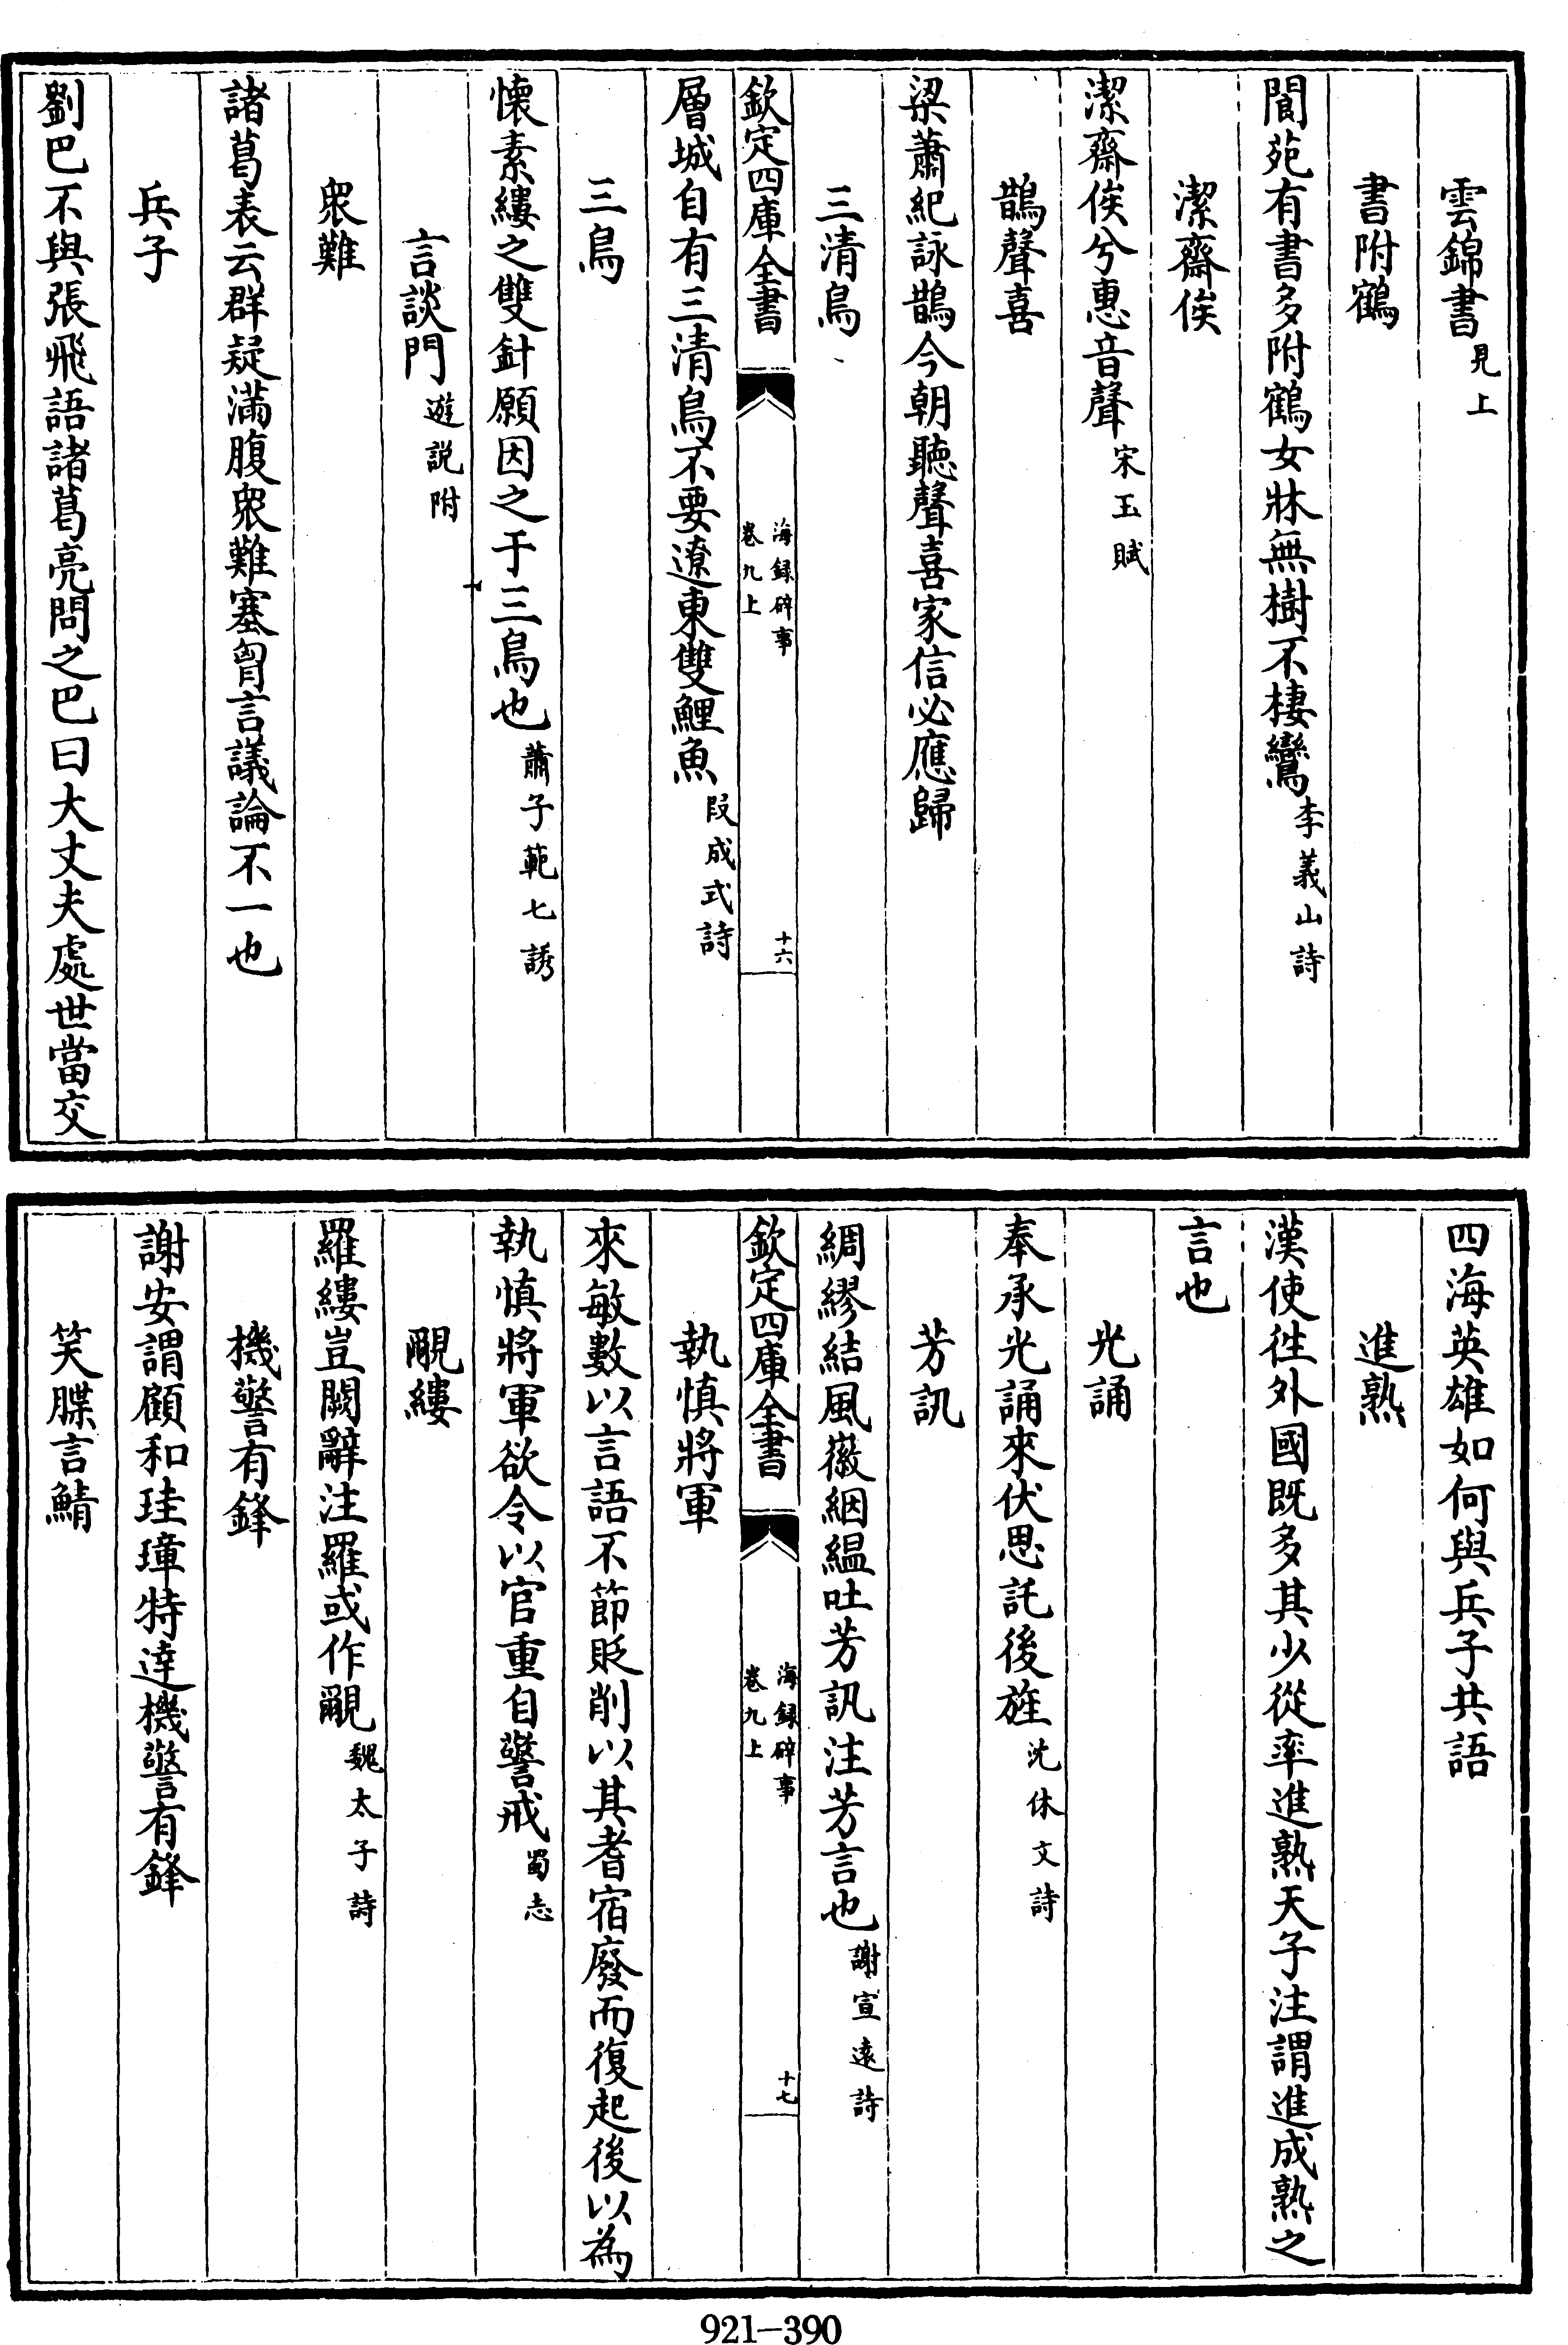 雲錦書見上
書附鶴
閬苑有書多附鶴女牀無樹不棲鸞李義山詩
潔齋俟
潔齋俟兮惠音聲宋玉賦
鵲聲喜
梁蕭紀詠鵲今朝聽聲喜家信必應歸
三清鳥
欽定四庫全書
海録碎事
卷九上
十六
層城自有三清鳥不要遼東雙鯉魚段成式詩
三鳥
懐素縷之雙針願因之于三鳥也蕭子範七誘
言談門遊説附
衆難
諸葛表云群疑滿腹衆難塞胷言議論不一也
兵子
劉巴不與張飛語諸葛亮問之巴曰大丈夫處世當交
四海英雄如何與兵子共語
進熟
漢使徃外國既多其少從率進熟天子注謂進成熟之
言也
光誦
奉承光誦來伏思託後旌沈休文詩
芳訊
綢繆結風徽絪緼吐芳訊注芳言也謝宣遠詩
欽定四庫全書
海録碎事
卷九上
十七
執慎將軍
來敏數以言語不節貶削以其耆宿廢而復起後以為
執慎將軍欲令以官重自警戒蜀志
覼縷
羅縷豈闕辭注羅或作覼魏太子詩
機警有鋒
謝安謂顧和珪璋特達機警有鋒
笑牒言鯖
921-390